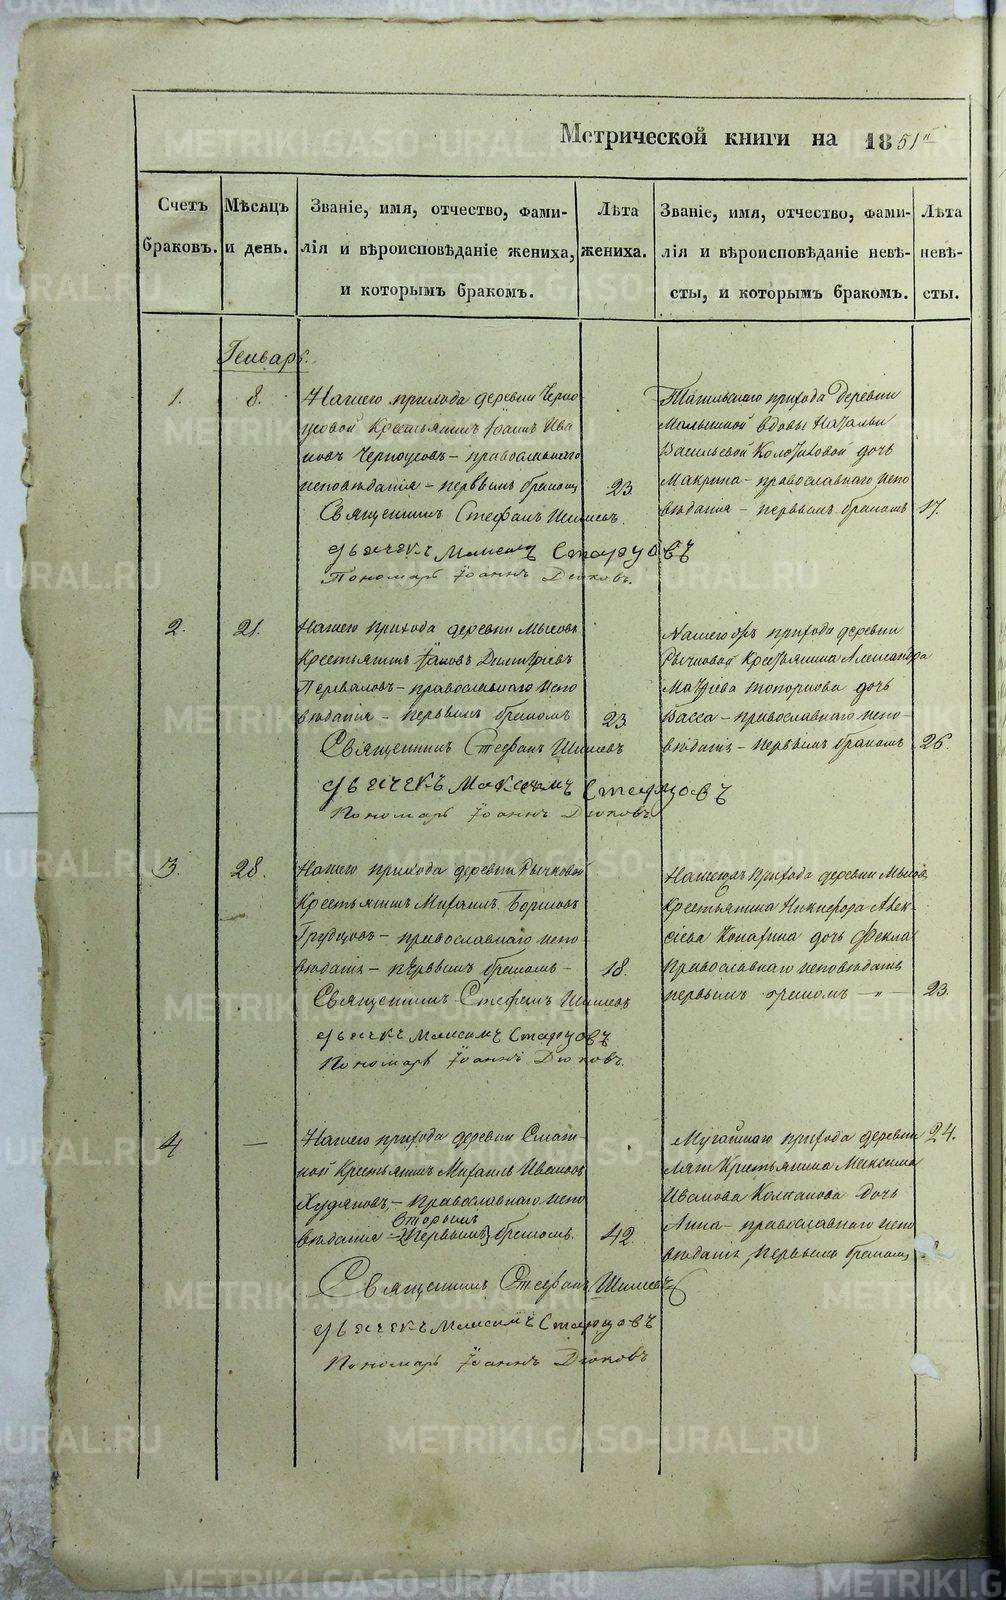 Метрической книги на 1851й
Счетъ браковъ.
Мѣсяцъ и день.
Званіе, имя, отчество, фами-
лія и вѣроисповѣданіе жениха,
и которымъ бракомъ.
Лѣта жениха.
Званіе, имя, отчество, фами-
лія и вѣроисповѣданіе невѣ-
сты, и которымъ бракомъ.
Лѣта невѣ-
сты.
Генварь.
1. 8.
Нашего прихода деревни Черно
усовой Крестьянинъ Іоаннъ Ива
новъ Черноусовъ – православнаго
исповѣданія – первымъ бракомъ
23.
Священникъ Стефанъ
Дьячекъ Максимъ Старцовъ
Пономарь Іоаннъ Дюковъ.
прихода деревни
вдовы Натальи
Васильевой дочь
Макрина – православнаго испо
вѣданія – первымъ бракомъ
17.
2. 21.
Нашего прихода деревни Мысовъ
Крестьянинъ Іаковъ Димитріевъ
Перваловъ – православнаго испо
вѣданія – первымъ бракомъ
23
Священникъ Стефанъ
Дьячекъ Максимъ Старцовъ
Пономарь Іоаннъ Дюковъ
прихода деревни
Рычковой Крестьянина Александра
Топоркова дочь
Васса – православнаго испо-
вѣданія – первымъ бракомъ
26.
3. 28.
Нашего прихода деревни Рычковой
Крестьянинъ Михаилъ Борисовъ
– православнаго испо-
вѣданія – первымъ бракомъ –
18.
Священникъ Стефанъ
Дьячекъ Максимъ Старцовъ
Пономарь Іоаннъ Дюковъ.
прихода деревни Мысовъ
Крестьянина Никифора Алек-
сіева дочь Фекла
Православнаго исповѣданія
первымъ бракомъ – „ –
23.
4 –
Нашего прихода деревни
Крестьянинъ Михаилъ Ивановъ
Худяковъ, – Православнаго испо
вторымъ
вѣданія – {первымъ} бракомъ.
42.
Священникъ Стефанъ
Дьячекъ Максимъ Старцовъ
Пономарь Іоаннъ Дюковъ
Мугайскаго прихода деревни
Крестьянина Максима
Иванова Колпакова дочь
Анна – православнаго испо
вѣданія, первымъ бракомъ
24.
METRIKI.GASO-URAL.RU